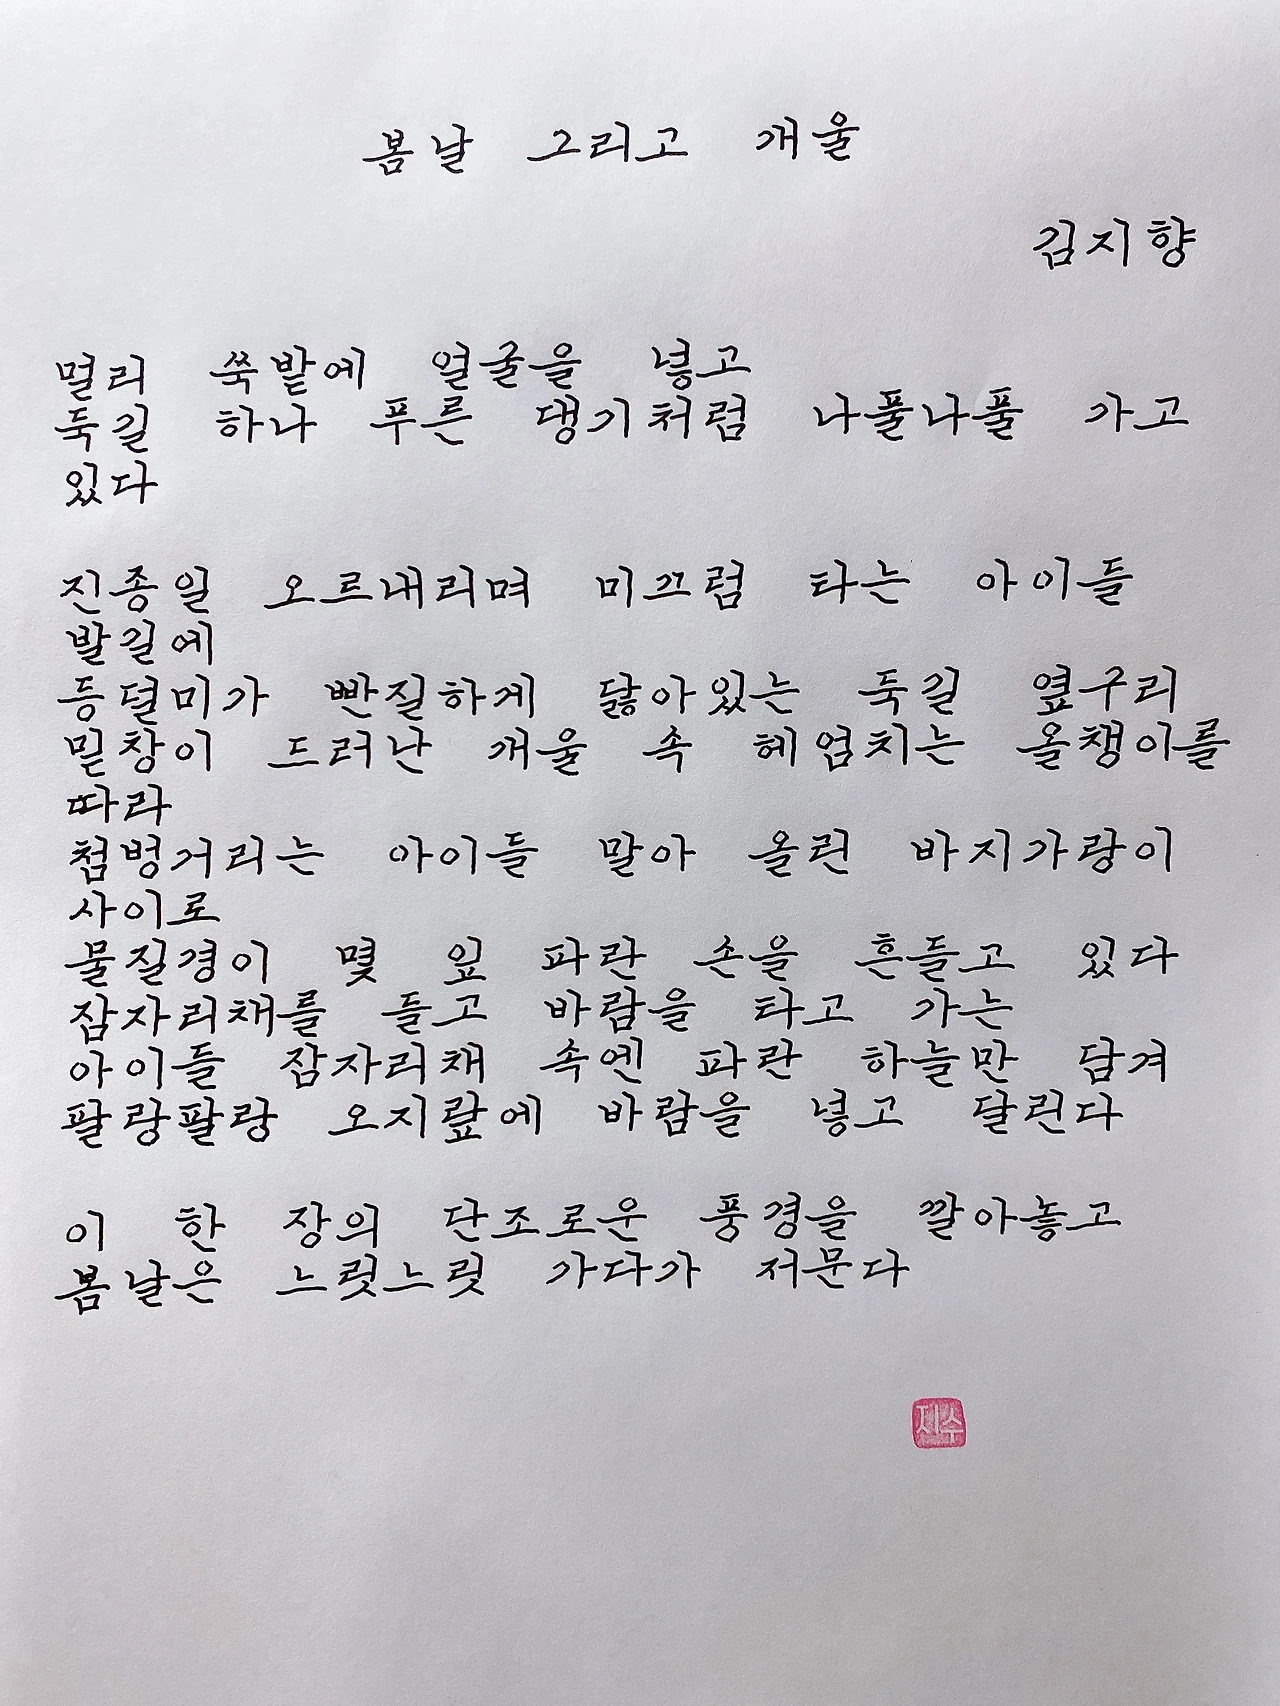 봄날 그리고 개울
김지향
멀리 쑥밭에 얼굴을 넣고
둑길 하나 푸른 댕기처럼 나풀나풀 가고
있다
진종일 오르내리며 미끄럼 타는 아이들
발길에
등덜미가 빤질하게 닳아있는 둑길 옆구리
밑창이 드러난 개울 속 헤엄치는 올챙이를
따라
첨벙거리는 아이들 말아 올린 바지가랑이
사이로
물질경이 몇 잎 파란 손을 흔들고 있다
잠자리채를 들고 바람을 타고 가는
아이들 잠자리채 속엔 파란 하늘만 담겨
팔랑팔랑 오지랖에 바람을 넣고 달린다
이 한 장의 단조로운 풍경을 깔아놓고
봄날은 느릿느릿 가다가 저문다